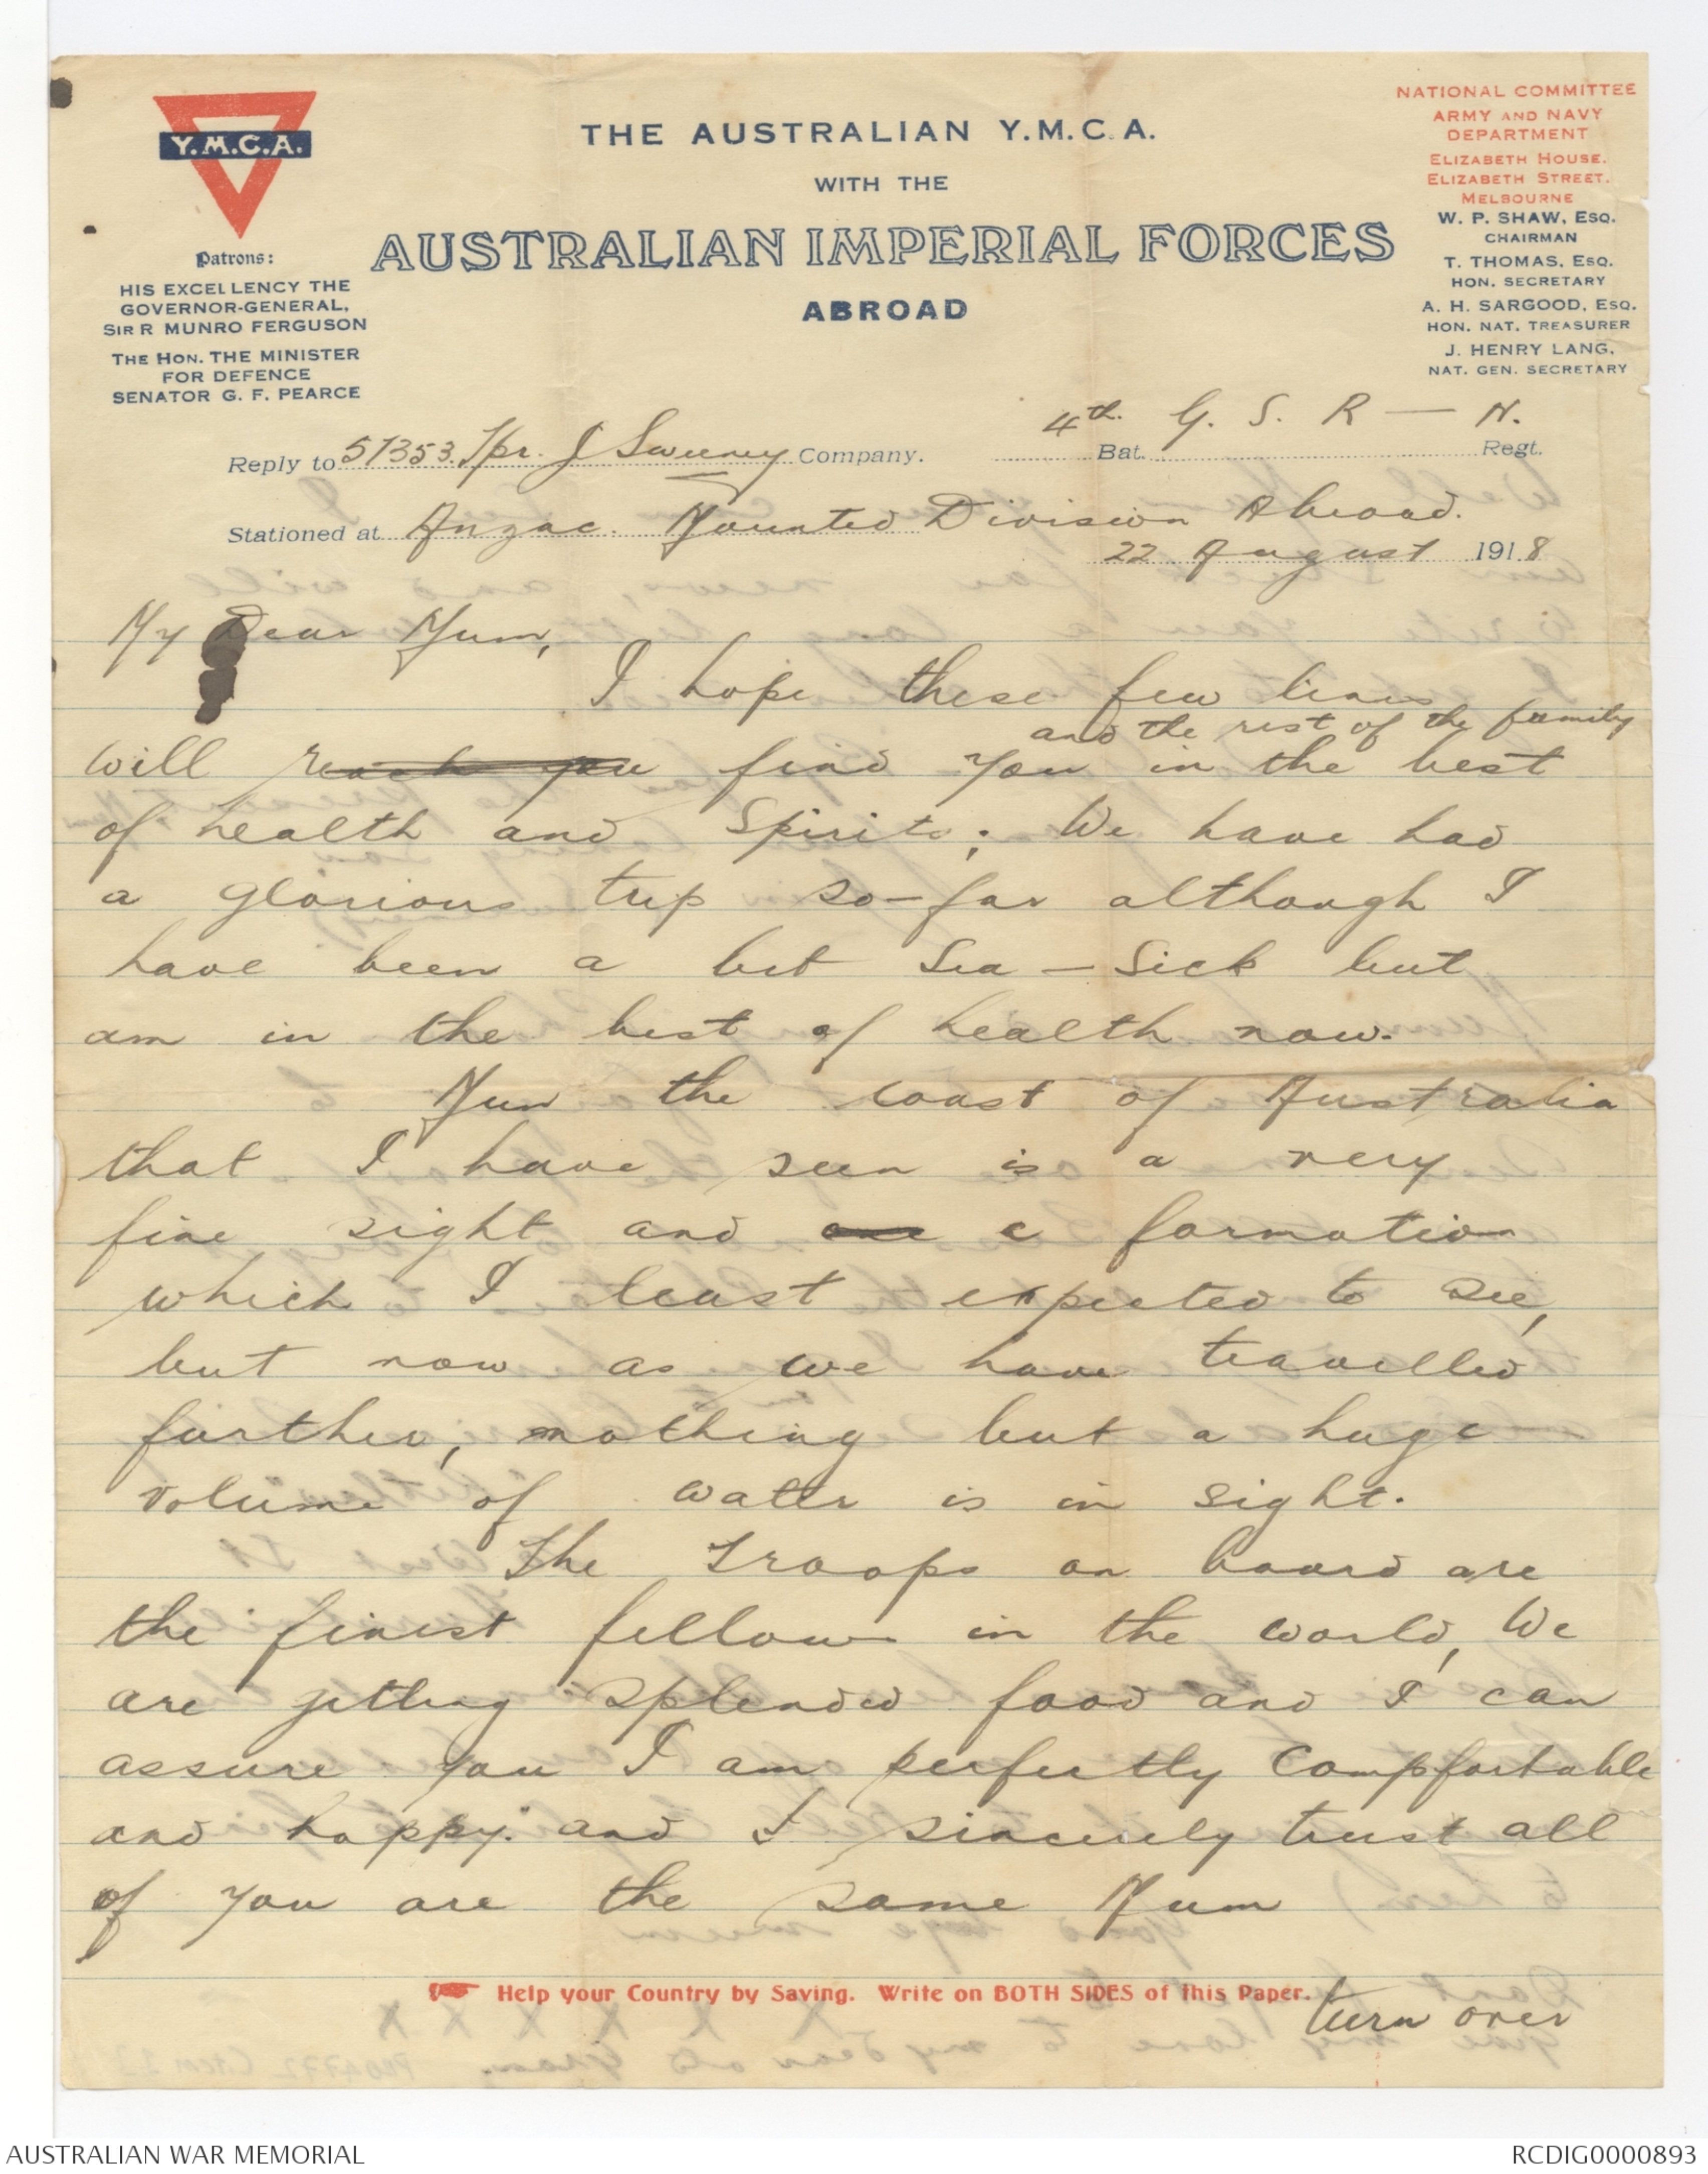 Y.M.C.A.
Patrons:
HIS EXCELLENCY THE
GOVERNOR-GENERAL,
SIR R MUNRO FERGUSON
THE HON. THE MINISTER
FOR DEFENCE
SENATOR G. F. PEARCE
THE AUSTRALIAN Y.M.C.A.
WITH THE
AUSTRALIAN IMPERIAL FORCES
ABROAD
NATIONAL COMMITTEE
ARMY AND NAVY
DEPARTMENT
ELIZABETH HOUSE.
ELIZABETH STREET.
MELBOURNE
W. P. SHAW, ESQ.
CHAIRMAN
T. THOMAS, ESQ.
HON. SECRETARY
A. H. SARGOOD, ESQ.
HON. NAT. TREASURER
J. HENRY LANG,
NAT. GEN. SECRETARY
Reply to 57353. Tpr. J Sweeney Company. 4th. Bat. G. S. R — N. Regt.
Stationed at Anzac. Mounted Division Abroad.
22 August 1918
My Dear Mum,
I hope these few lines
and the rest of the family
will reach you find you in the best
of health and Spirits; We have had
a glorious trip so-far although I
have been a bit Sea-Sick but
am in the best of health now.
Mum the coast of Australia
that I have seen is a very
fine sight and one a formation
which I least expected to see,
but now as we have travelled
further, nothing but a huge
volume of water is in sight.
The Troops on board are
the finest fellows in the world, We
are getting splended food and I can
assure you I am perfectly Compfortable
and happy. and I sincerely trust all
of you are the same Mum
Help your Country by Saving. Write on BOTH SIDES of this Paper.
turn over
AUSTRALIAN WAR MEMORIAL
RCDIG0000893